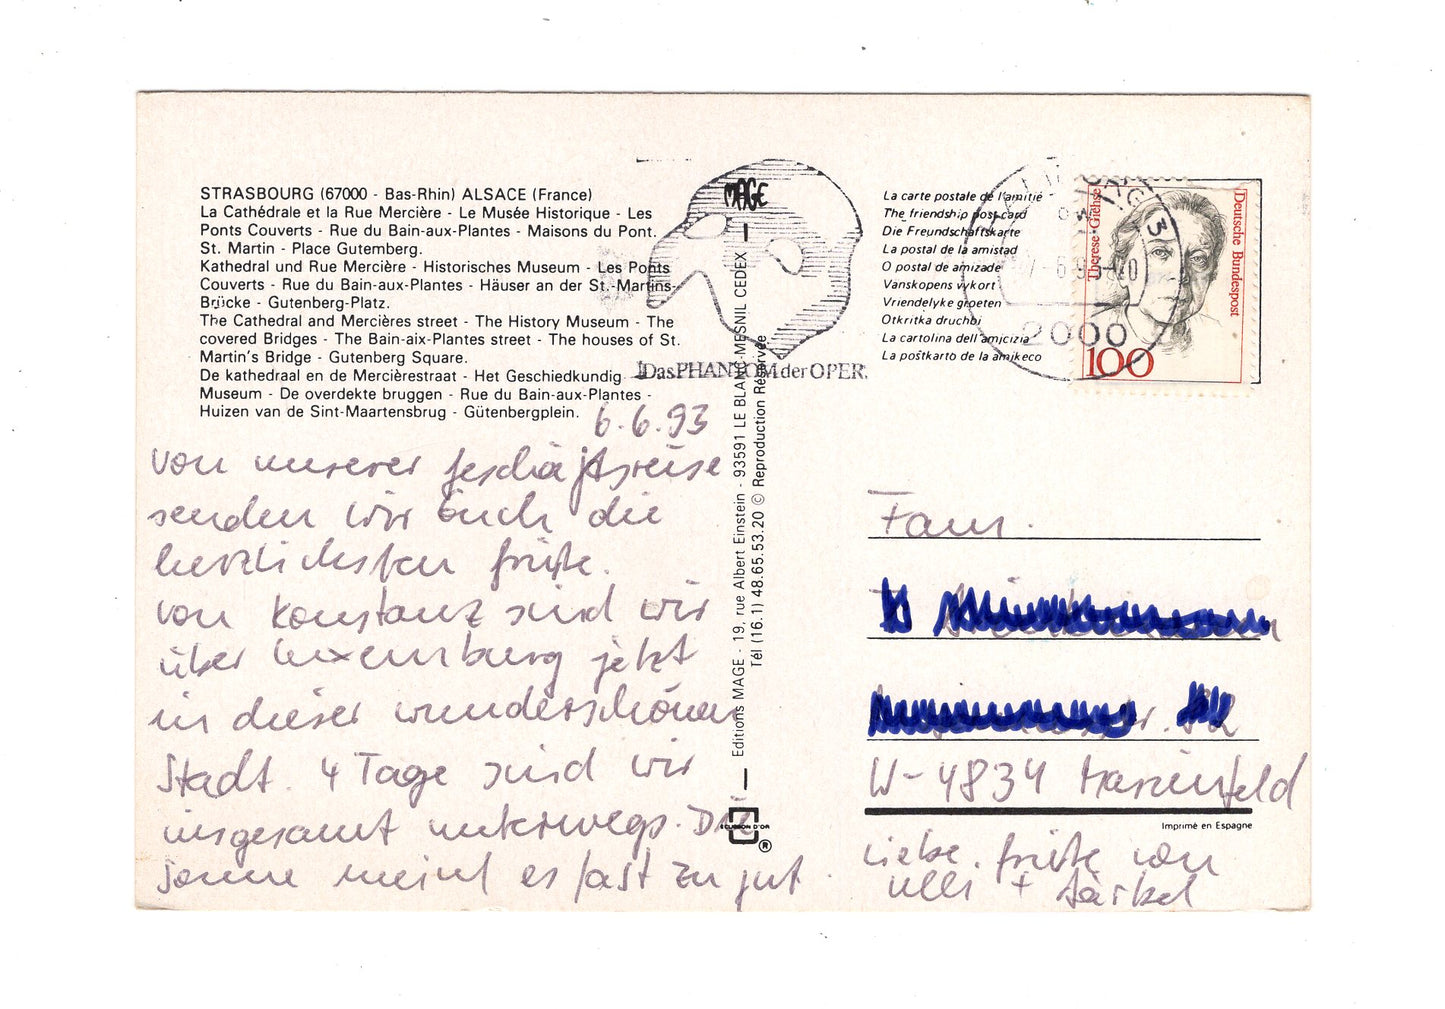 STRASBOURG (67000 - Bas-Rhin) ALSACE (France)
La Cathédrale et la Rue Mercière - Le Musée Historique - Les
Ponts Couverts - Rue du Bain-aux-Plantes - Maisons du Pont.
St. Martin - Place Gutemberg.
Kathedral und Rue Mercière - Historisches Museum - Les Ponts
Couverts - Rue du Bain-aux-Plantes - Häuser an der St.-Martins-
Brücke - Gutenberg-Platz.
The Cathedral and Mercières street - The History Museum - The
covered Bridges - The Bain-aix-Plantes street - The houses of St.
Martin's Bridge - Gutenberg Square.
De kathedraal en de Mercièrestraat - Het Geschiedkundig
Museum - De overdekte bruggen - Rue du Bain-aux-Plantes -
Huizen van de Sint-Maartensbrug - Gütenbergplein.
6.6.93
von unserer Geschäftsreise
senden wir Euch die
herzlichsten Grüße.
von Konstanz sind wir
über Luxemburg jetzt
in dieser wunderschönen
Stadt. 4 Tage sind wir
insgesamt unterwegs. Die
Sonne meint es fast zu gut.
MAGE
Das PHANTOM der OPER
Editions MAGE - 19, rue Albert Einstein - 93591 LE BLANC-MESNIL CEDEX
Tél (16.1) 48.65.53.20 © Reproduction Réservée
ECUSSON D'OR
®
La carte postale de l'amitié
The friendship post card
Die Freundschaftskarte
La postal de la amistad
O postal de amizade
Vanskopens vykort
Vriendelyke groeten
Otkritka druchbi
La cartolina dell'amicizia
La poŝtkarto de la amikeco
2000
Therese Giehse
Deutsche Bundespost
100
Fam.
W-4834 Marienfeld
Imprimé en Espagne
Liebe Grüße von
Ulli + Bärbel